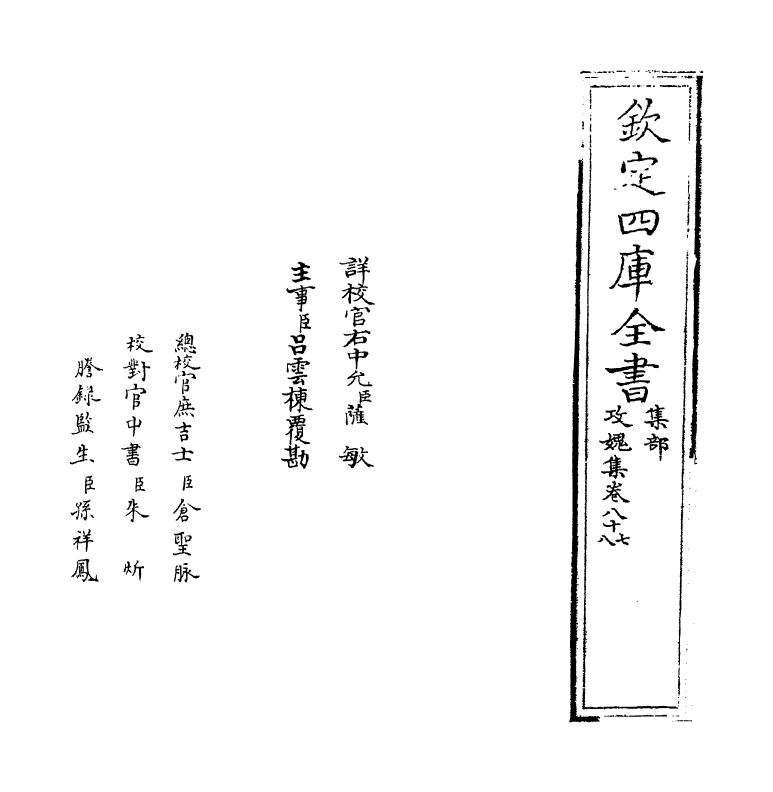 欽定四庫全書
集部
攻媿集卷八十七
八
詳校官右中允臣薩敏
主事臣呂雲棟覆勘
總校官庶吉士臣倉聖脉
校對官中書臣朱炘
謄録監生臣孫祥鳳